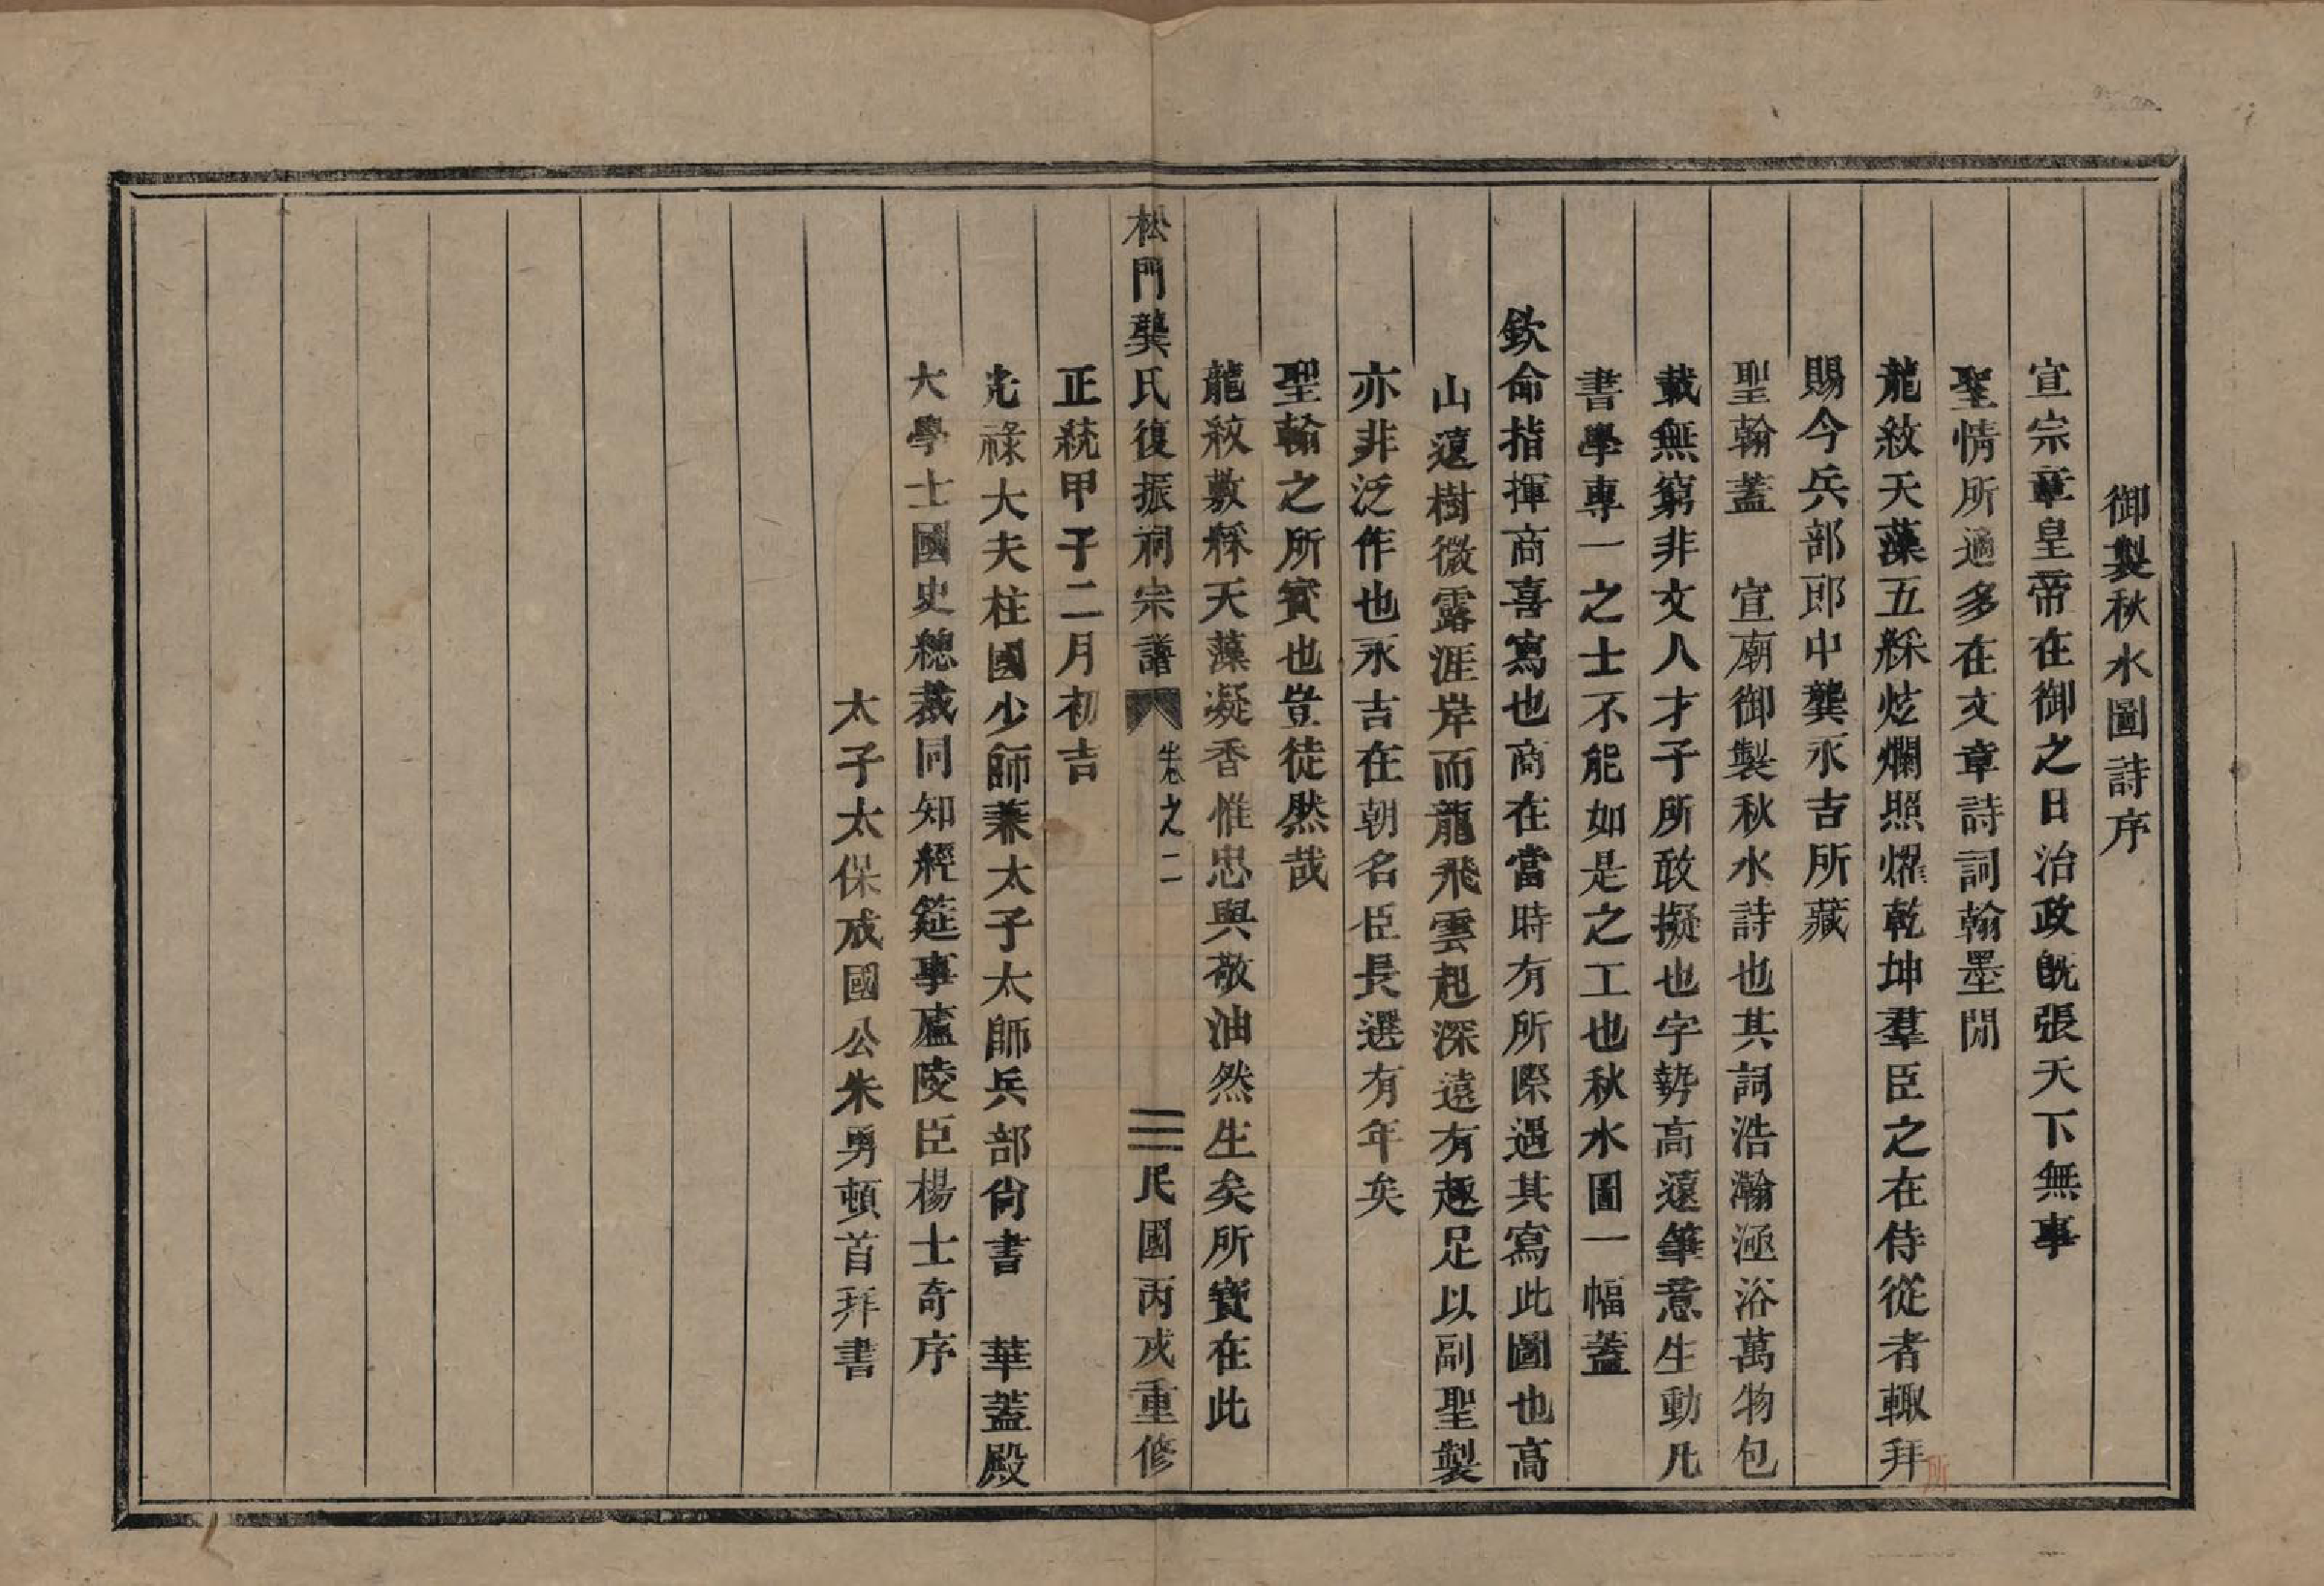 御製秋水圖詩序
宣宗章皇帝在御之日治政旣張天下無事
聖情所適多在文章詩詞翰墨閒
龍紋天藻五綵炫爛照燿乾坤羣臣之在侍從者輙拜
所
賜今兵部郎中龔永吉所藏
聖翰蓋　宣廟御製秋水詩也其詞浩瀚涵浴萬物包
載無窮非文人才子所敢擬也字勢高遠筆意生動凡
書學專一之士不能如是之工也秋水圖一幅蓋
欽命指揮商喜寫也商在當時有所際遇其寫此圖也高
山遠樹微露涯岸而龍飛雲起深遠有趣足以副聖製
亦非泛作也永吉在朝名臣長選有年矣
聖翰之所寳也豈徒然哉
龍紋敷綵天藻凝香惟忠與敬油然生矣所寳在此
松門龔氏復振祠宗譜　卷之二　三　民國丙戌重修
正統甲子二月初吉
光祿大夫柱國少師兼太子太師兵部尙書　華蓋殿
大學士國史總裁同知經筵事廬陵臣楊士奇序
太子太保成國公朱勇頓首拜書